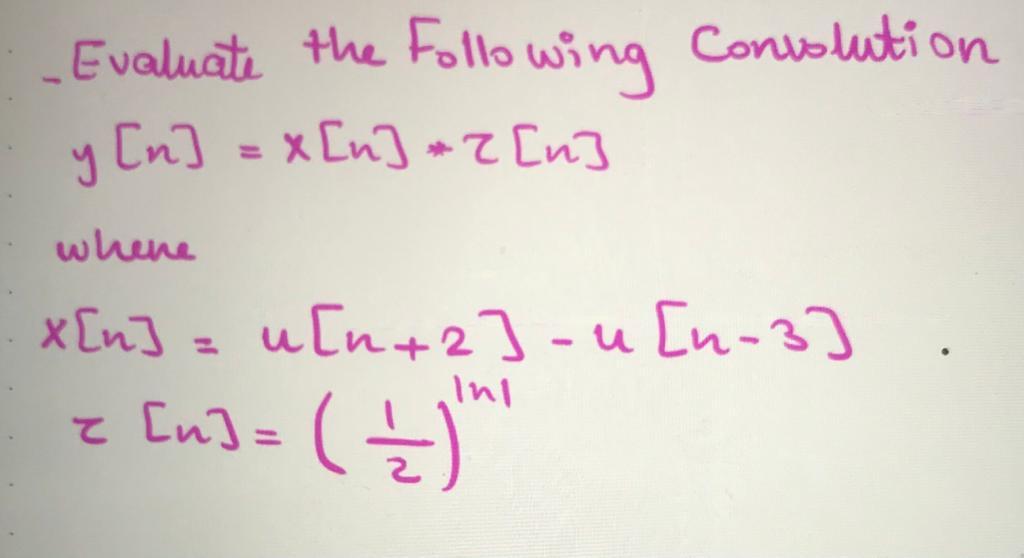 - Evaluate the Following Convolution
y[n] = x[n] * z[n]
where
x[n] = u[n+2] - u[n-3]
z[n] = (1/2)^|n|